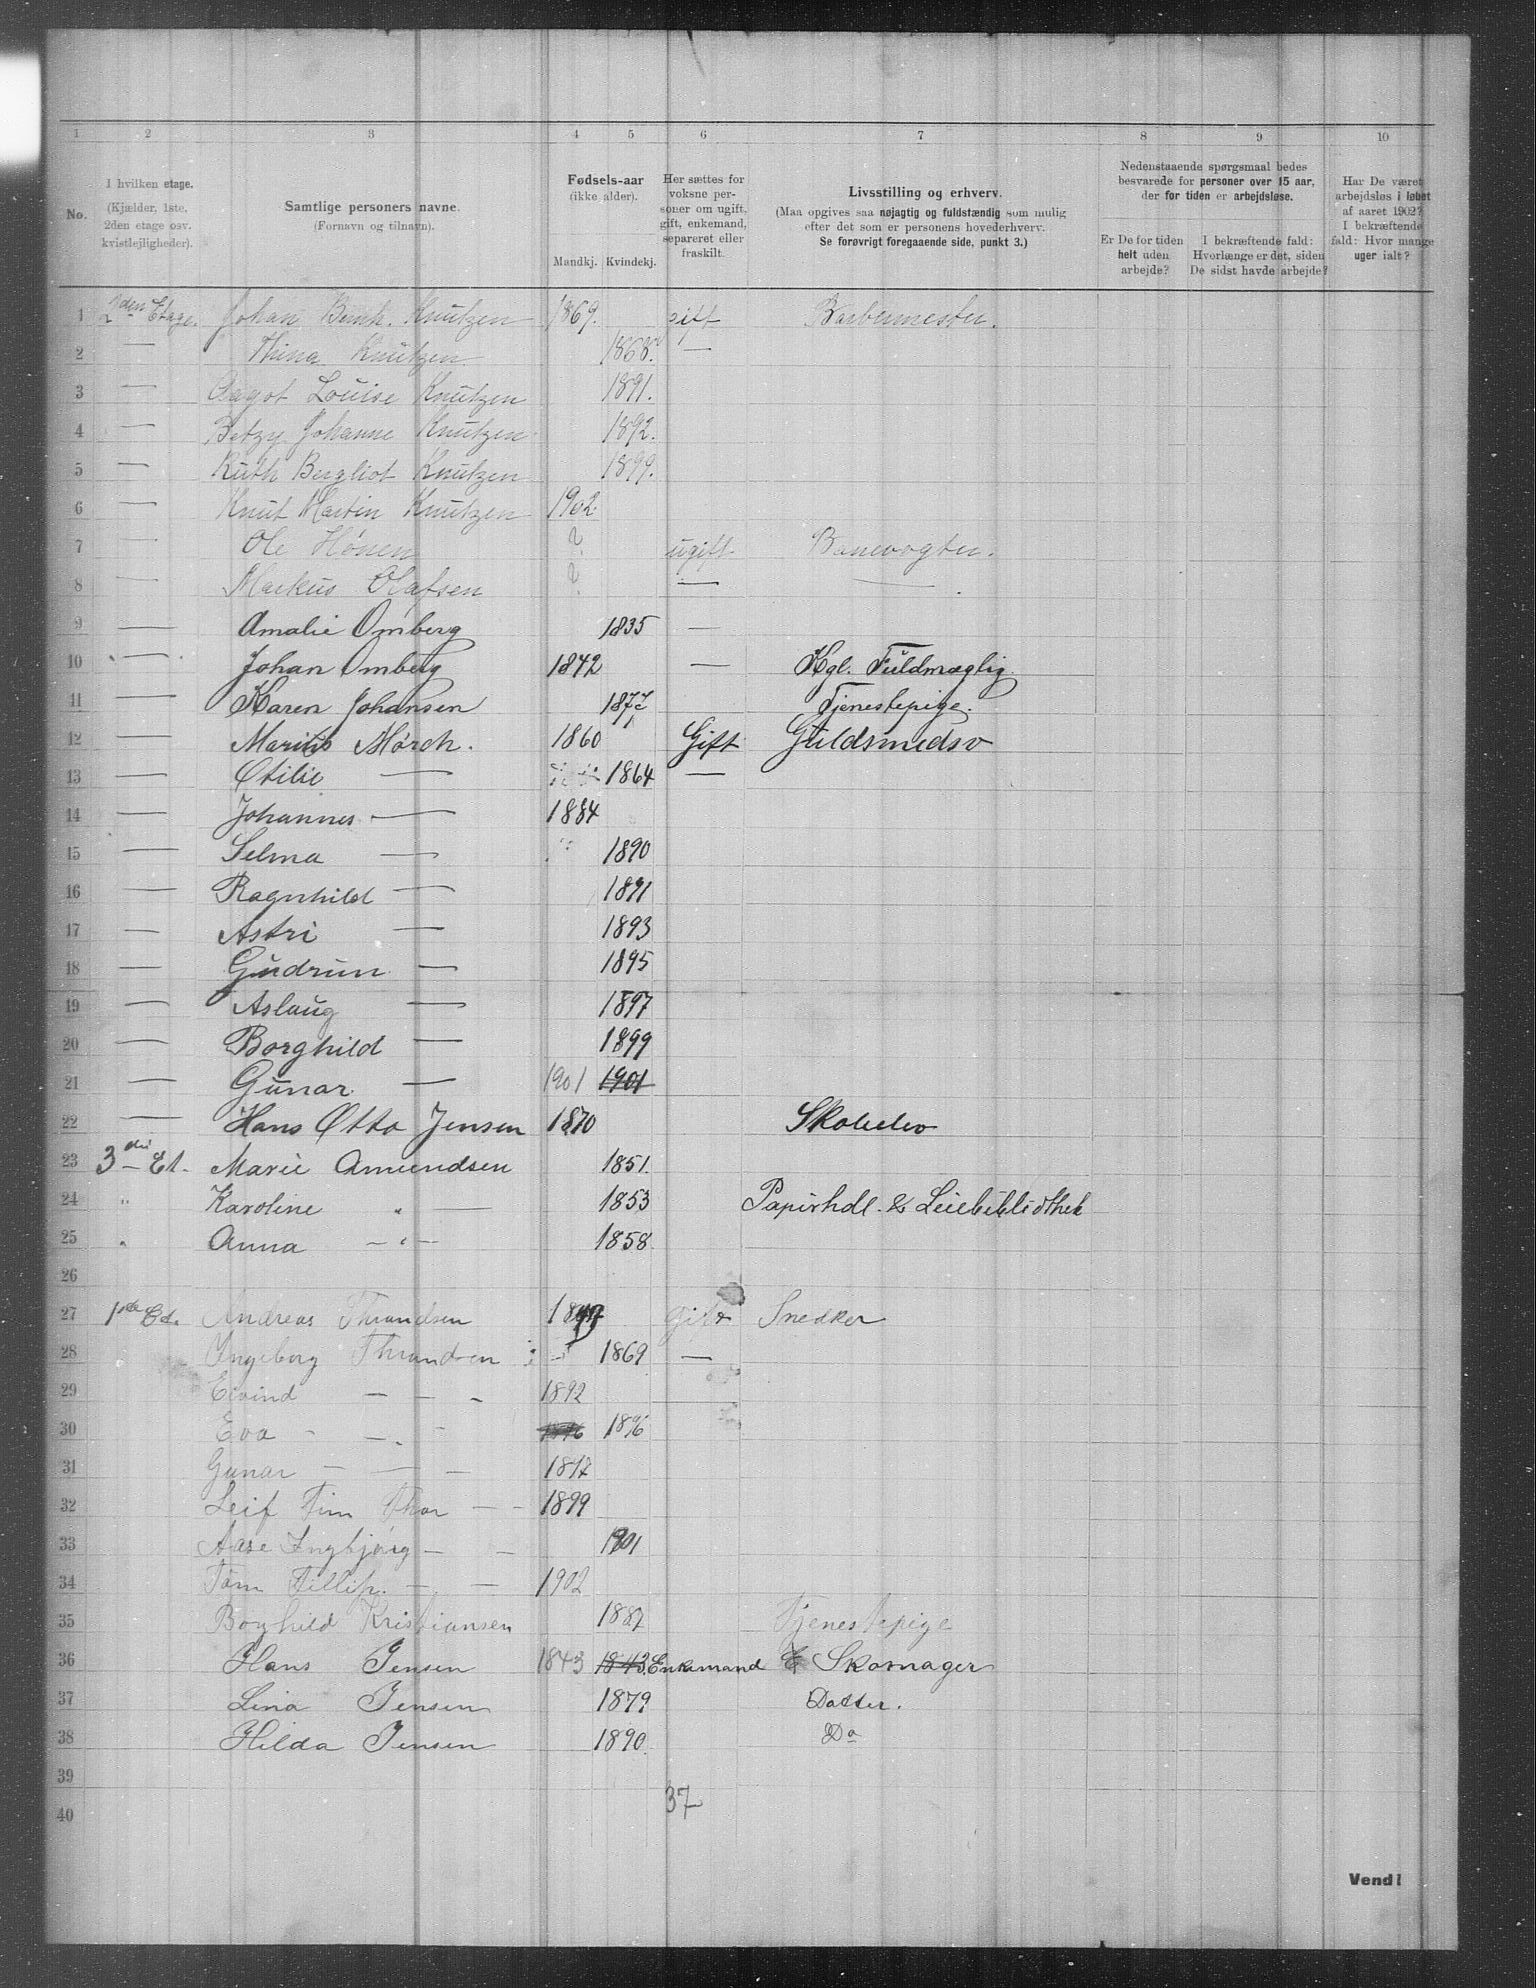 1 2 3 4 5 6 7 8 9 10
No.
I hvilken etage.
(Kjælder, 1ste,
2den etage osv.
kvistlejligheder).
Samtlige personers navne.
(Fornavn og tilnavn).
Fødsels-aar
(ikke alder).
Mandkj. Kvindekj.
Her sættes for
voksne per-
soner om ugift,
gift, enkemand,
separeret eller
fraskilt.
Livsstilling og erhverv.
(Maa opgives saa nøjagtig og fuldstændig som mulig
efter det som er personens hovederhverv.
Se forøvrigt foregaaende side, punkt 3.)
Nedenstaaende spørgsmaal bedes
besvarede for personer over 15 aar,
der for tiden er arbejdsløse.
Er De for tiden
helt uden
arbejde?
I bekræftende fald:
Hvorlænge er det, siden
De sidst havde arbejde?
Har De været
arbejdsløs i løbet
af aaret 1902?
I bekræftende
fald: Hvor mange
uger ialt?
1 2den Etage. Johan Bernh. Knutzen 1869. gift Barbermester.
2 — Thina Knutzen 1868. —
3 — Aagot Louise Knutzen 1891.
4 — Betzy Johanne Knutzen 1892.
5 — Ruth Bergliot Knutzen 1899.
6 — Knut Martin Knutzen 1902.
7 — Ole Hønen ? ugift Banevogter.
8 — Markus Olafsen ? — —
9 — Amalie Omberg 1835 —
10 — Johan Omberg 1842 — Kgl. Fuldmægtig
11 — Karen Johansen 1877 Tjenestepige.
12 — Marius Mørch. 1860 Gift Guldsmedsv
13 — Otilie — 1864 —
14 — Johannes — 1884
15 — Selma — 1890
16 — Ragnhild — 1891
17 — Astri — 1893
18 — Gudrun — 1895
19 — Aslaug — 1897
20 — Borghild — 1899
21 — Gunar — 1901 1901
22 — Hans Otto Jensen 1870
23 3die Et. Marie Amundsen 1851.
24 " Karoline " — 1853 Papirhdl. & Leiebibliothek
25 " Anna — " — 1858
26
27 1ste Et. Andreas Thrandsen gift Snedker
28 Ingeborg Thrandsen 1869 —
29 Eivind — — — 1892
30 Eva — — — 1896
31 Gunar — — — 1897
32 Leif Finn Thor — — 1899
33 Aase Ingbjørg — — 1901
34 Tom Fillip. — — 1902
35 Borghild Kristiansen 1887 Tjenestepige
36 Hans Jensen 1843 1843 Enkemand Skomager
37 Lina Jensen 1879 Datter.
38 Hilda Jensen 1890 Do
39
40
37
Vend!